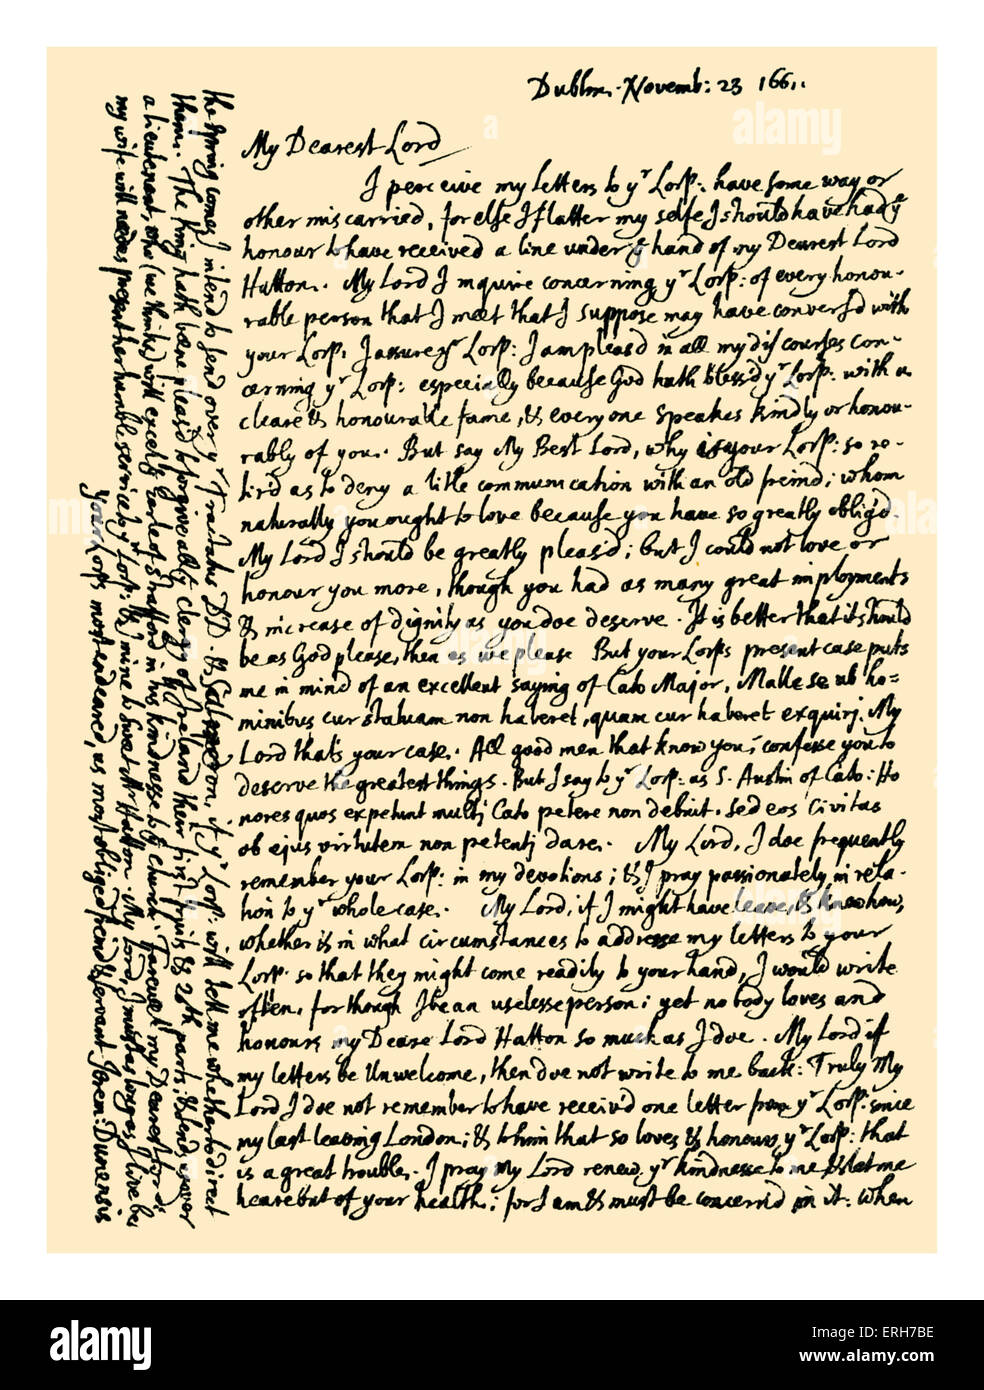 Dublin. Novemb: 23 1661.
My Dearest Lord
I perceive my letters to yr Lorsp: have some way or
other miscarried, for else I flatter my selfe I should have had ye
honour to have received a line under ye hand of my Dearest Lord
Hatton. My Lord I inquire concerning yr Lorsp: of every honou-
rable person that I meet that I suppose may have convers'd with
your Lorsp. I assure yr Lorsp: I am pleas'd in all my discourses con-
cerning yr Lorsp: especially because God hath bless'd yr Lorsp: with a
cleare & honourable fame, & every one speakes kindly or honou-
rably of you. But say My Best Lord, why is your Lorsp: so re-
tir'd as to deny a litle communication with an old freind; whom
naturally you ought to love because you have so greatly oblig'd.
My Lord I should be greatly pleas'd; but I could not love or
honour you more, though you had as many great imployments
& increase of dignity as you doe deserve. It is better that it should
be as God please, then as we please But your Lorsps present case puts
me in mind of an excellent saying of Cato Major, Malle se ab ho=
minibus cur statuam non haberet, quam cur haberet exquirj. My
Lord that's your case. All good men that know you, confesse you to
deserve the greatest things. But I say to yr Lorsp: as S. Austin of Cato: Ho
nores quos expetunt multj Cato petere non debuit. sed eos Civitas
ob ejus virtutem non petentj dare. My Lord, I doe frequently
remember your Lorsp: in my devotions; & I pray passionately in rela-
tion to yr whole case. My Lord, if I might have leave, & knew how,
whether & in what circumstances to addresse my letters to your
Lorsp. so that they might come readily to your hand, I would write
often. for though I be an uselesse person; yet no body loves and
honours my Deare Lord Hatton so much as I doe. My Lord if
my letters be unwelcome, then doe not write to me back: Truly My
Lord I doe not remember to have receiv'd one letter from yr Lorsp: since
my last leaving London; & to him that so loves & honours yr Lorsp: that
is a great trouble. I pray My Lord renew yr kindnesse to me & let me
heare but of your health; for I am & must be concern'd in it: when
the spring comes I intend to send over yr Tractatus DD. & if yr Lorsp: will tell me whether to direct
them. The king hath beene pleas'd to forgive all ye clergy of Ireland their first fruits & 20th parts, & to send us over
a lieutenant, who (we think) will exceed ye earle of Strafford in his kindnesse to ye church. Farewell my Dearest Lord:
my wife will needs present her humble service to yr Lorsp: & mine to sweet Mr Hatton. My Lord, I must as long as I live be
Your Lorsps most endeared, as most obliged freind & servant Jerem: Dunensis
alamy
a
ERH7BE
www.alamy.com